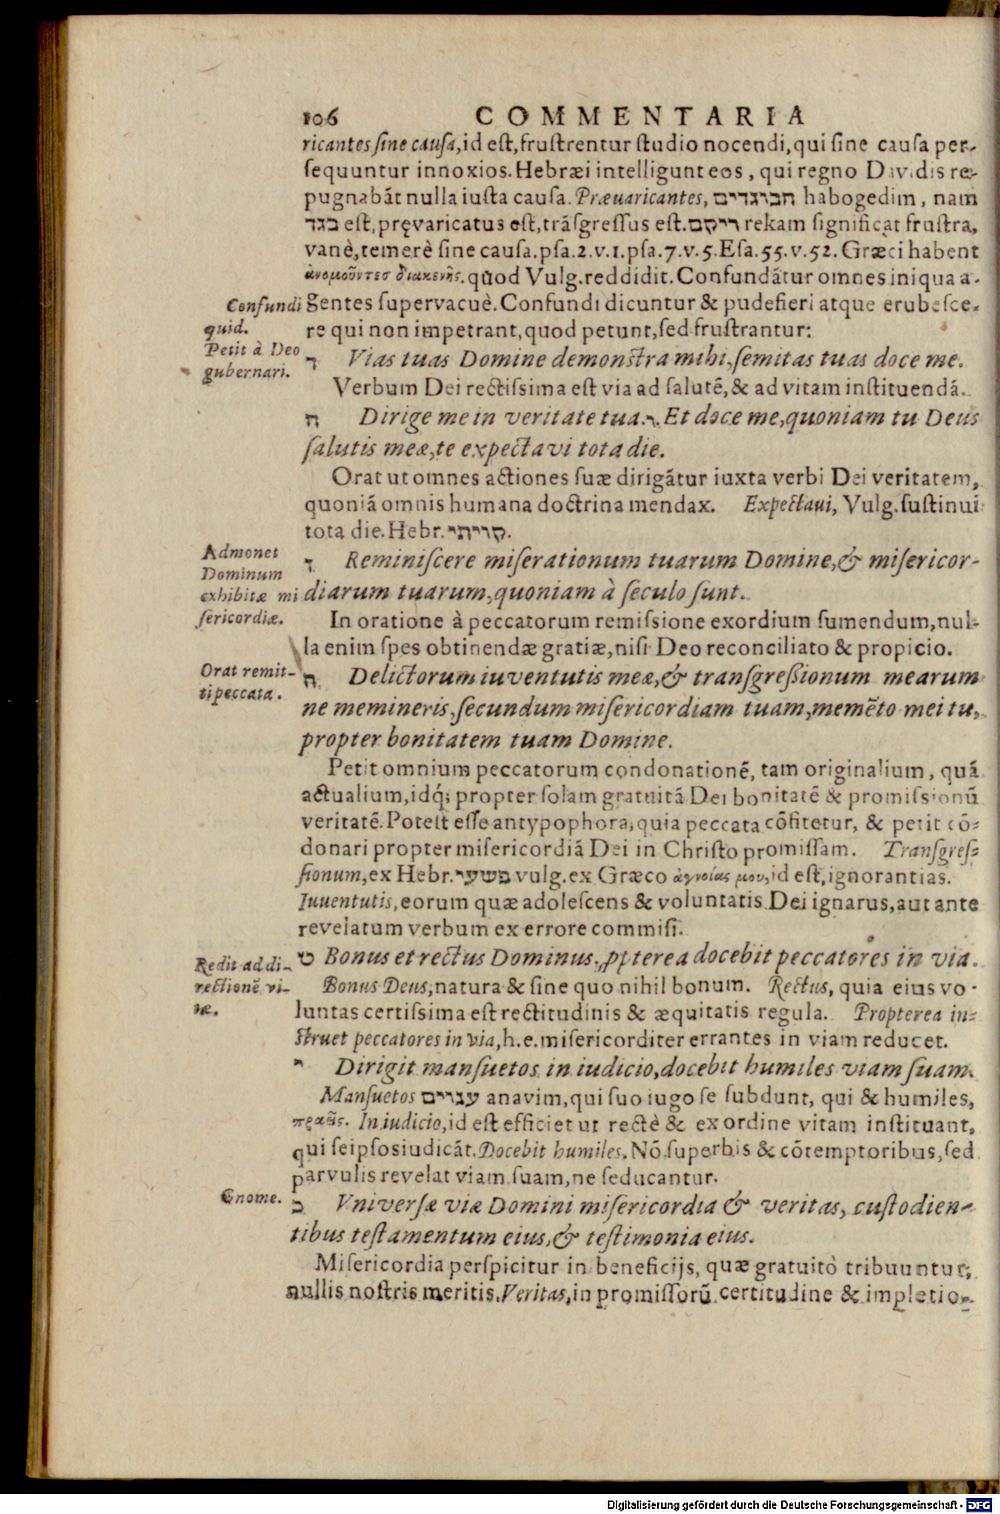 106 COMMENTARIA
ricantes ſine cauſa, id eſt, fruſtrentur ſtudio nocendi, qui ſine cauſa per-
ſequuntur innoxios. Hebræi intelligunt eos, qui regno Davidis re-
pugnabāt nulla iuſta cauſa. Præuaricantes, הבוגדים habogedim, nam
בגד eſt, pręvaricatus eſt, trāſgreſſus eſt. ריקם rekam ſignificat fruſtra,
vanè, temerè ſine cauſa. pſa. 2. v. 1. pſa. 7. v. 5. Eſa. 55. v. 52. Græci habent
ἀνομοῦντες διακενῆς. quod Vulg. reddidit. Confundātur omnes iniqua a-
Confundi
quid.
gentes ſupervacuè. Confundi dicuntur & pudefieri atque erubeſce-
re qui non impetrant, quod petunt, ſed fruſtrantur:
Petit à Deo
gubernari.
ד Vias tuas Domine demonſtra mihi, ſemitas tuas doce me.
Verbum Dei rectiſsima eſt via ad ſalutē, & ad vitam inſtituendā.
ה Dirige me in veritate tua. ו. Et doce me, quoniam tu Deus
ſalutis meæ, te expectavi tota die.
Orat ut omnes actiones ſuæ dirigātur iuxta verbi Dei veritatem,
quoniā omnis humana doctrina mendax. Expectaui, Vulg. ſuſtinui
tota die. Hebr. קויתי.
Admonet
Dominum
exhibitæ mi
ſericordiæ.
ז Reminiſcere miſerationum tuarum Domine, & miſericor-
diarum tuarum, quoniam à ſeculo ſunt.
In oratione à peccatorum remiſsione exordium ſumendum, nul-
la enim ſpes obtinendæ gratiæ, niſi Deo reconciliato & propicio.
Orat remit-
ti peccata.
ח Delictorum iuventutis meæ, & tranſgreſsionum mearum
ne memineris, ſecundum miſericordiam tuam, memēto mei tu,
propter bonitatem tuam Domine.
Petit omnium peccatorum condonationē, tam originalium, quā
actualium, idq́; propter ſolam gratuitā Dei bonitatē & promiſsionū
veritatē. Poteſt eſſe antypophora, quia peccata cōfitetur, & petit cō-
donari propter miſericordiā Dei in Chriſto promiſſam. Tranſgreſ-
ſionum, ex Hebr. פשעי vulg. ex Græco ἀγνοίας μου, id eſt, ignorantias.
Iuuentutis, eorum quæ adoleſcens & voluntatis Dei ignarus, aut ante
revelatum verbum ex errore commiſi.
Redit ad di-
rectionē vi-
æ.
ט Bonus et rectus Dominus, ꝓpterea docebit peccatores in via.
Bonus Deus, natura & ſine quo nihil bonum. Rectus, quia eius vo-
luntas certiſsima eſt rectitudinis & æquitatis regula. Propterea in-
ſtruet peccatores in via, h.e. miſericorditer errantes in viam reducet.
י Dirigit manſuetos in iudicio, docebit humiles viam ſuam.
Manſuetos ענוים anavim, qui ſuo iugo ſe ſubdunt, qui & humiles,
πραεῖς. In iudicio, id eſt efficiet ut rectè & ex ordine vitam inſtituant,
qui ſeipſos iudicāt. Docebit humiles. Nō ſuperbis & cōtemptoribus, ſed
parvulis revelat viam ſuam, ne ſeducantur.
Gnome.
כ Vniverſæ viæ Domini miſericordia & veritas, cuſtodien-
tibus teſtamentum eius, & teſtimonia eius.
Miſericordia perſpicitur in beneficijs, quæ gratuitò tribuuntur,
nullis noſtris meritis. Veritas, in promiſſorū certitudine & impletio-
Digitalisierung gefördert durch die Deutsche Forschungsgemeinschaft - DFG